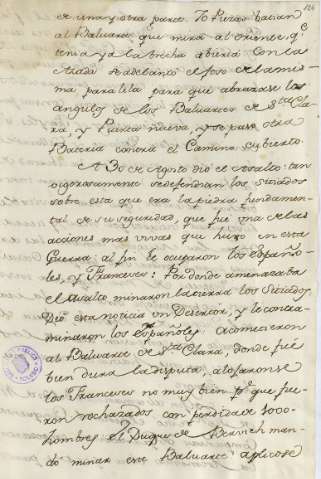 126
de una y otra parte. Io Puerta batian
al Baluarte que mira al oriente, q.e
tenia ya la brecha abierta con la
Azada se adelantò el foso de la mes-
ma paralela para que abrazase los
angulos de los Baluartes de S.ta Cla-
ra, y Puerta nueva, y se puso otra
Bateria contra el Camino cubierto.
A 30 de Agosto diò el Asalto: tan
vigorosamente se defendian los sitiados
sobre esta que era la piedra fundamen-
tal de su seguridad, que fuè una de las
acciones mas vivas que huvo en esta
Guerra: al fin le ocuparon los Españo-
les, y Franceses: Por donde amenazaba
el Asalto minaron la tierra los Sitiados.
Diò esta noticia un Desertor, y le contra-
minaron los Españoles. Acometieron
al Baluarte de S.ta Clara, donde fuè
bien dura la disputa, alojaronse
los Franceses no muy bien p.r q.e fue-
ron rechazados con perdida de 1000.
hombres. El Duque de Bervich man-
dò minar este Baluarte: aplicose